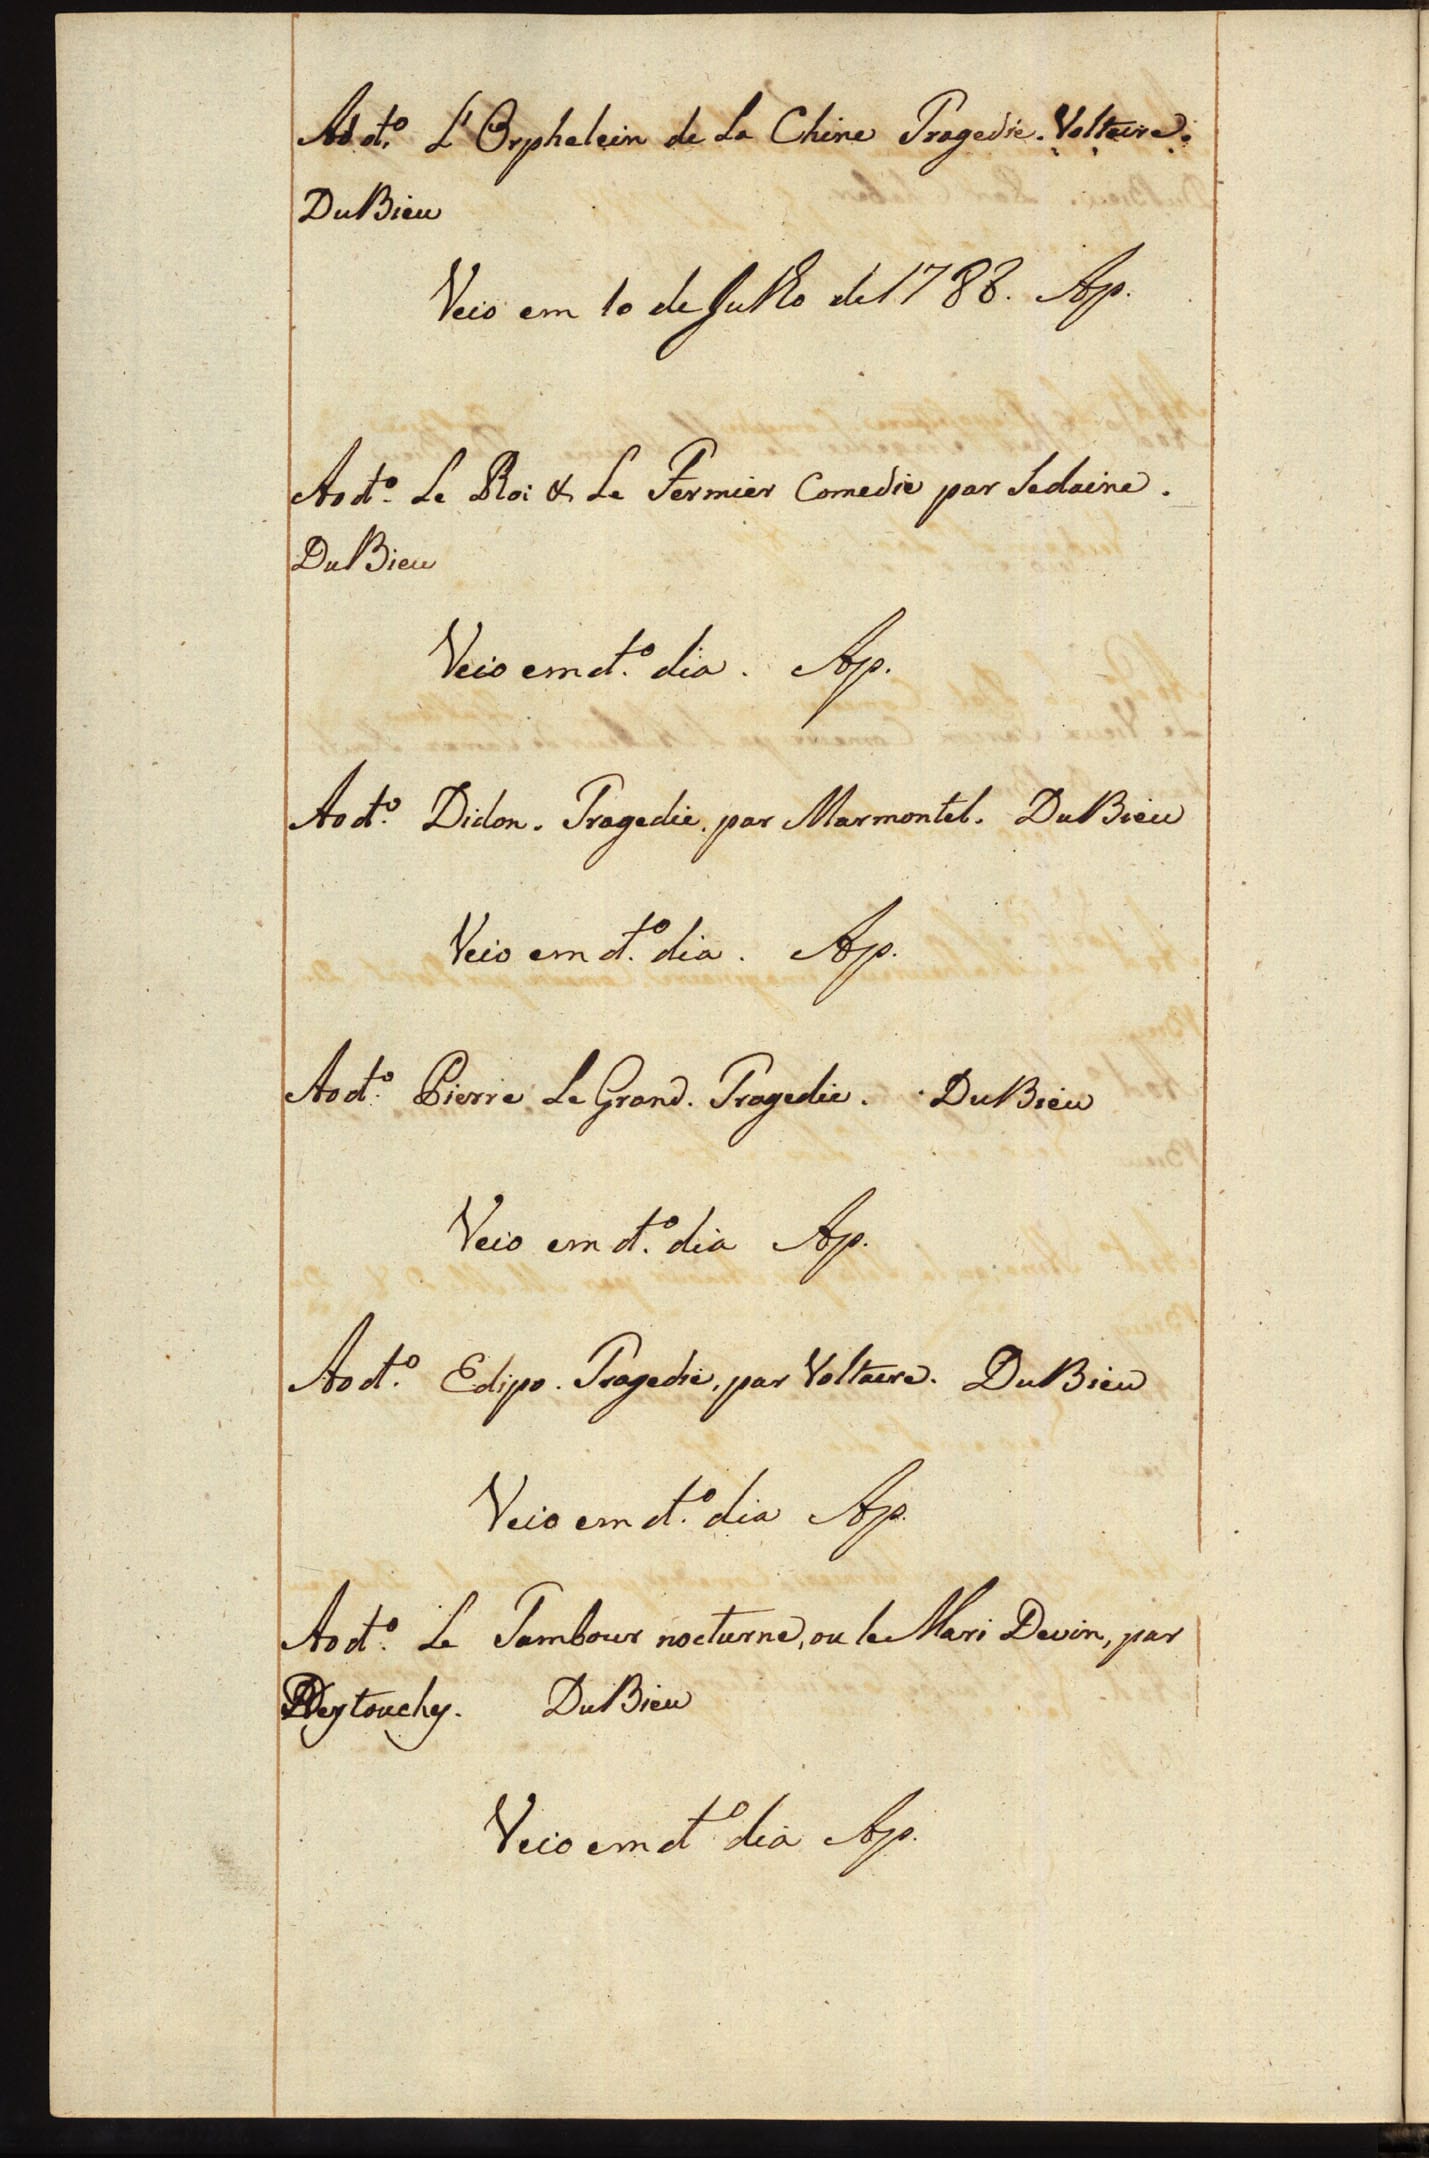 Ao dt.º L'Orphelein de La Chine Tragedie. Voltaire.
Du Bieu
Veio em 10 de Julho de 1788. Ap.
Ao dt.º Le Roi & Le Fermier Comedie par Sedaine.
Du Bieu
Veio em dt.º dia. Ap.
Ao dt.º Didon. Tragedie. par Marmontel. Du Bieu
Veio em dt.º dia. Ap.
Ao dt.º Pierre Le Grand. Tragedie. Du Bieu
Veio em dt.º dia Ap.
Ao dt.º Edipo. Tragedie, par Voltaere. Du Bieu
Veio em dt.º dia Ap.
Ao dt.º Le Tambour nocturne, ou le Mari Devin, par
Destouches. Du Bieu
Veio em dt.º dia Ap.